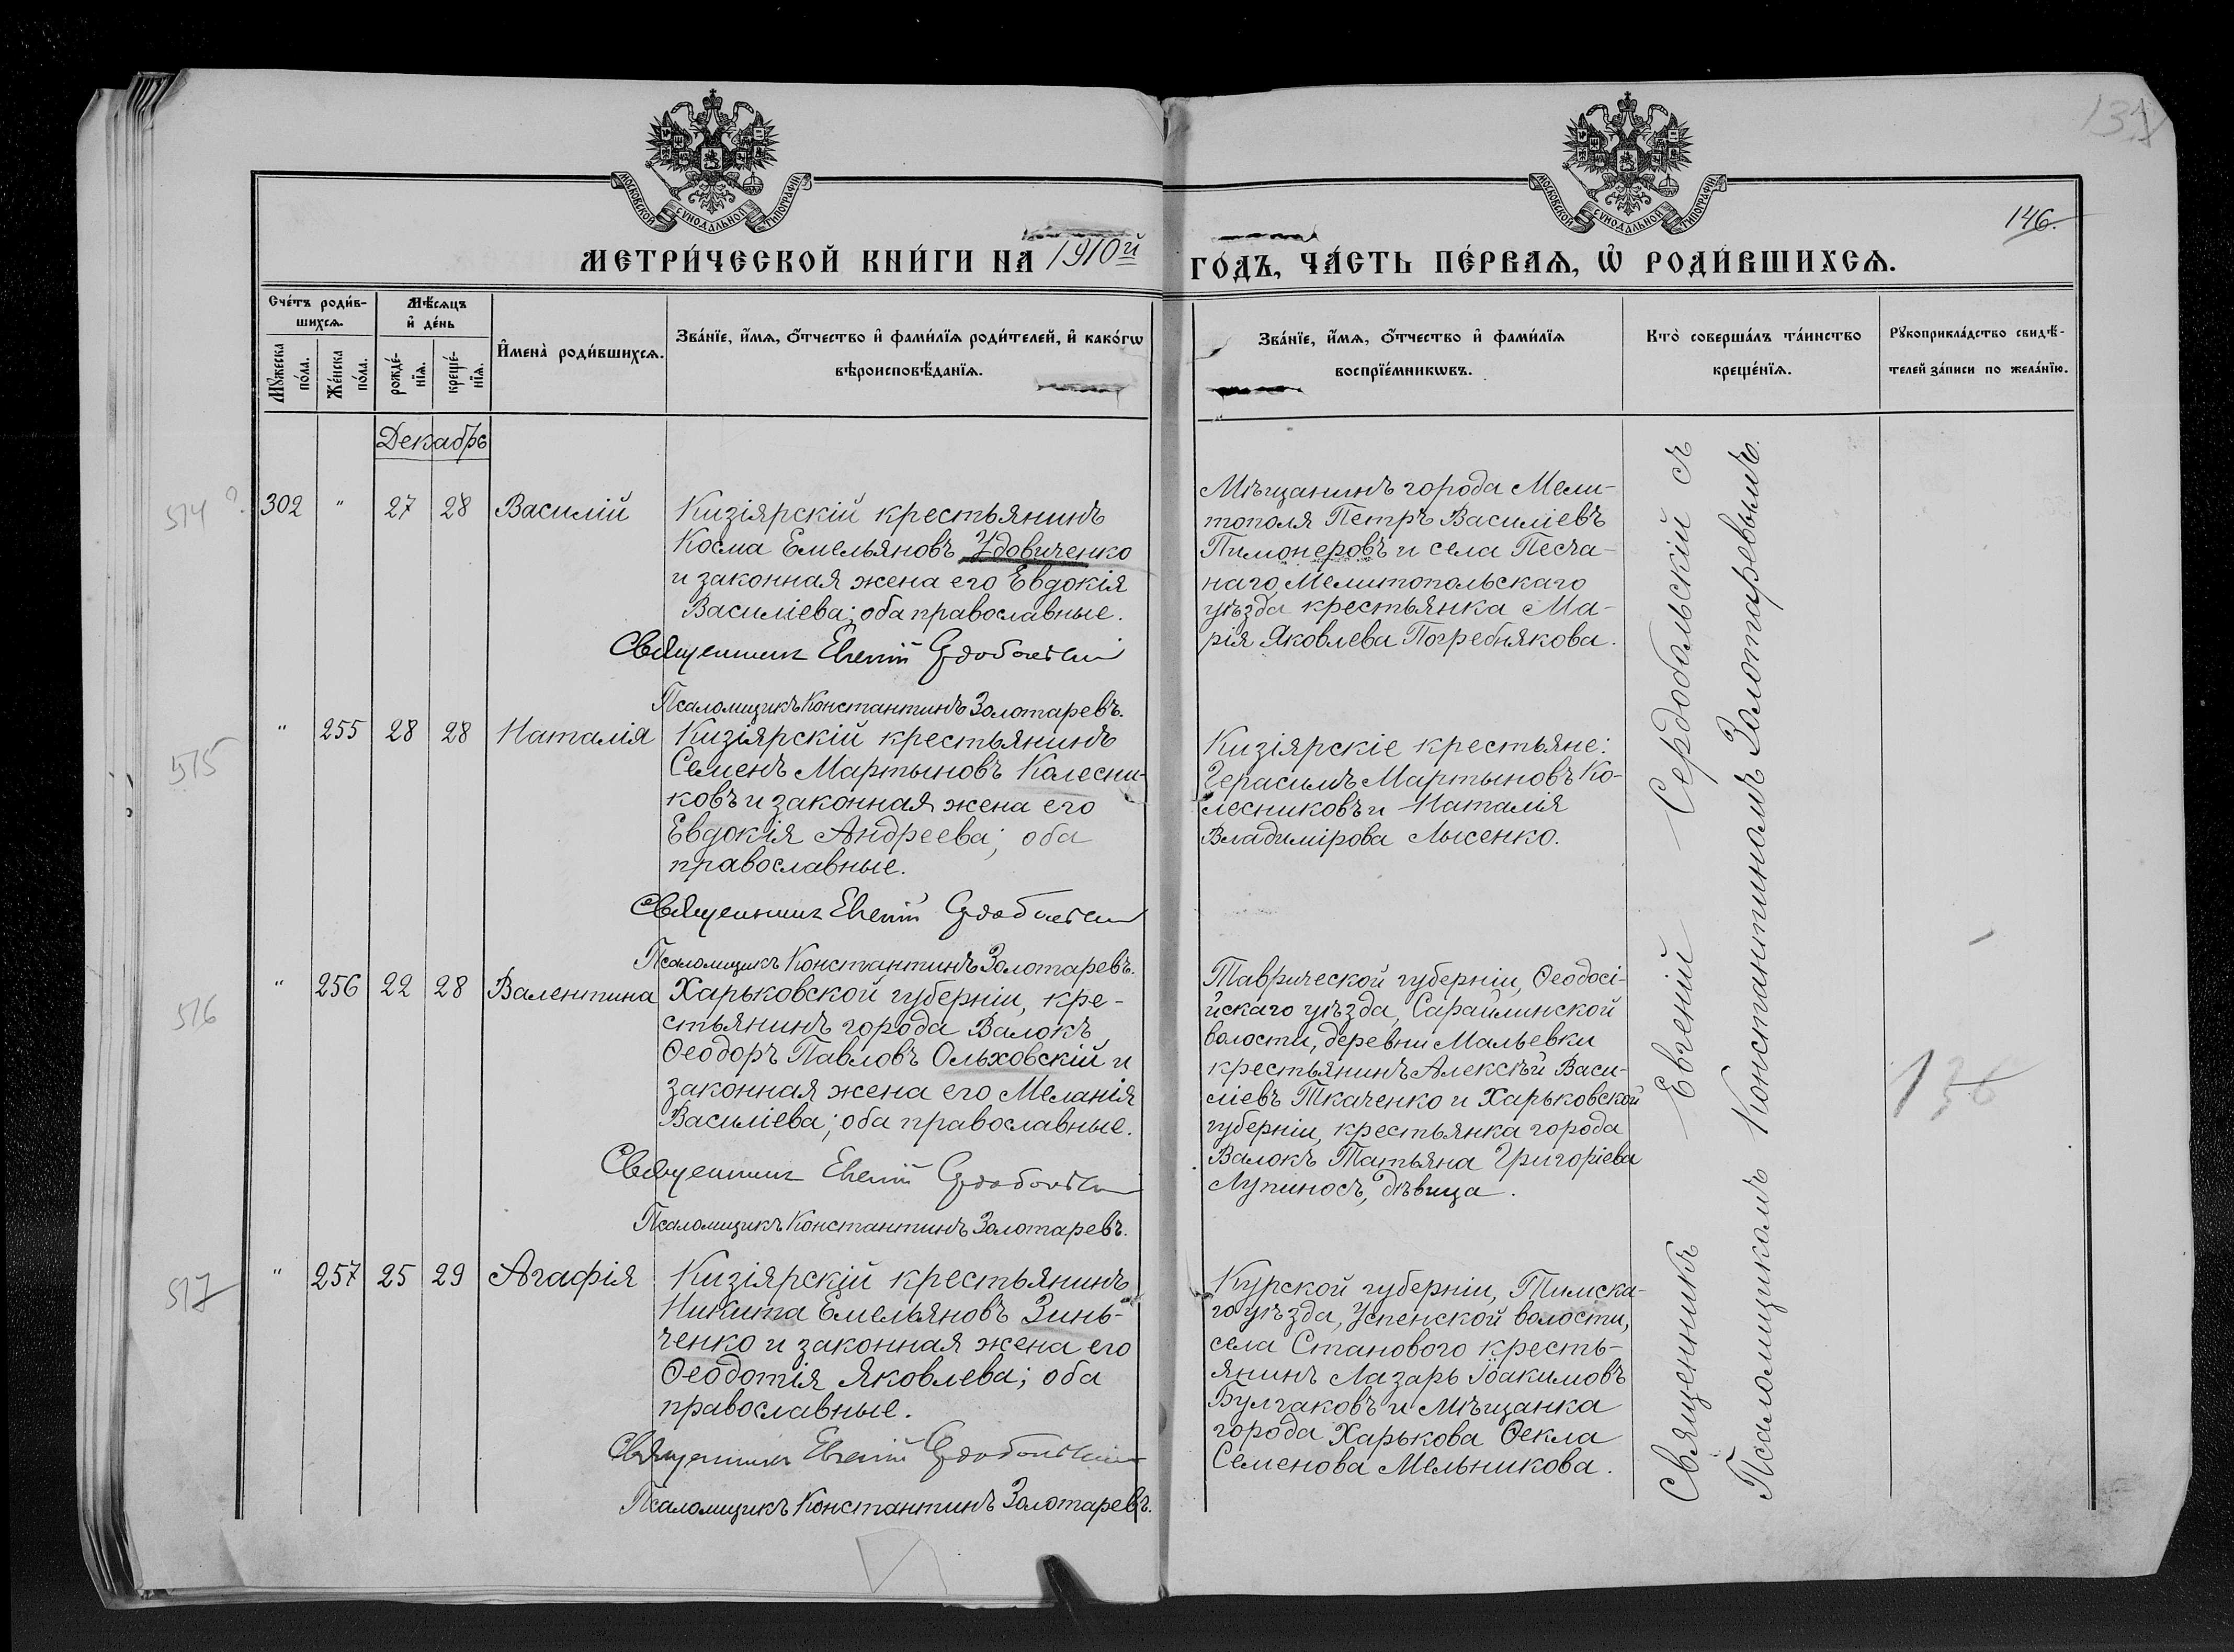 МОСКОВСКОЙ СѴНОДАЛЬНОЙ ТИПОГРАФІИ
МОСКОВСКОЙ СѴНОДАЛЬНОЙ ТИПОГРАФІИ
146.
МЕТРИ́ЧЕСКОЙ КНИ́ГИ НА 1910й ГО́ДЪ, ЧА́СТЬ ПЕ́РВАѦ, Ѡ҆ РОДИ́ВШИХСѦ.
Сче́тъ роди́в-
шихсѧ.
Мѣ́сѧцъ
и҆ де́нь
И҆мена̀ роди́вшихсѧ.
Зва́нїе, и҆́мѧ, ѻ҆́тчество и҆ фами́лїѧ роди́телей, и҆ како́гѡ
вѣроисповѣ́данїѧ.
Зва́нїе, и҆́мѧ, ѻ҆́тчество и҆ фами́лїѧ
воспрїе́мникѡвъ.
Кто̀ соверша́лъ та́инство
креще́нїѧ.
Рꙋкоприкла́дство свидѣ́-
телей за́писи по жела́нїю.
Мꙋ́жеска
по́ла.
Же́нска
по́ла.
рожде́-
нїѧ.
креще́-
нїѧ.
Декабрь
514 ?
302 " 27 28 Василій
Кизіярскій крестьянинъ
Косма Емельяновъ Удовиченко
и законная жена его Евдокія
Василіева; оба православные.
Священникъ Евгеній Сердобольскій
Псаломщикъ Константинъ Золотаревъ.
Мѣщанинъ города Мели-
тополя Петръ Василіевъ
Пимонеровъ и села Песча-
наго, Мелитопольскаго
уѣзда крестьянка Ма-
рія Яковлева Погребнякова.
515
" 255 28 28 Наталія
Кизіярскій крестьянинъ
Семенъ Мартыновъ Колесни-
ковъ и законная жена его
Евдокія Андреева; оба
православные.
Священникъ Евгеній Сердобольскій
Псаломщикъ Константинъ Золотаревъ.
Кизіярскіе крестьяне:
Герасимъ Мартыновъ Ко-
лесниковъ и Наталія
Владимірова Лысенко.
516
" 256 22 28 Валентина
Харьковской губерніи, кре-
стьянинъ города Валокъ
Ѳеодоръ Павловъ Ольховскій и
законная жена его Меланія
Василіева; оба православные.
Священникъ Евгеній Сердобольскій
Псаломщикъ Константинъ Золотаревъ.
Таврической губерніи, Ѳеодосі-
йскаго уѣзда, Сарайлинской
волости, деревни Мальевки
крестьянинъ Алексѣй Васи-
ліевъ Ткаченко и Харьковской
губерніи, крестьянка города
Валокъ Татьяна Григоріева
Лупиносъ, дѣвица.
517
" 257 25 29 Агафія
Кизіярскій крестьянинъ
Никита Емельяновъ Зинь-
ченко и законная жена его
Ѳеодотія Яковлева; оба
православные.
Священникъ Евгеній Сердобольскій
Псаломщикъ Константинъ Золотаревъ.
Курской губерніи, Тимска-
го уѣзда, Успенской волости,
села Становаго кресть-
янинъ Лазарь Іоакимовъ
Булгаковъ и мѣщанка
города Харькова Ѳекла
Семенова Мельникова.
Священникъ Евгеній Сердобольскій съ
Псаломщикомъ Константиномъ Золотаревымъ.